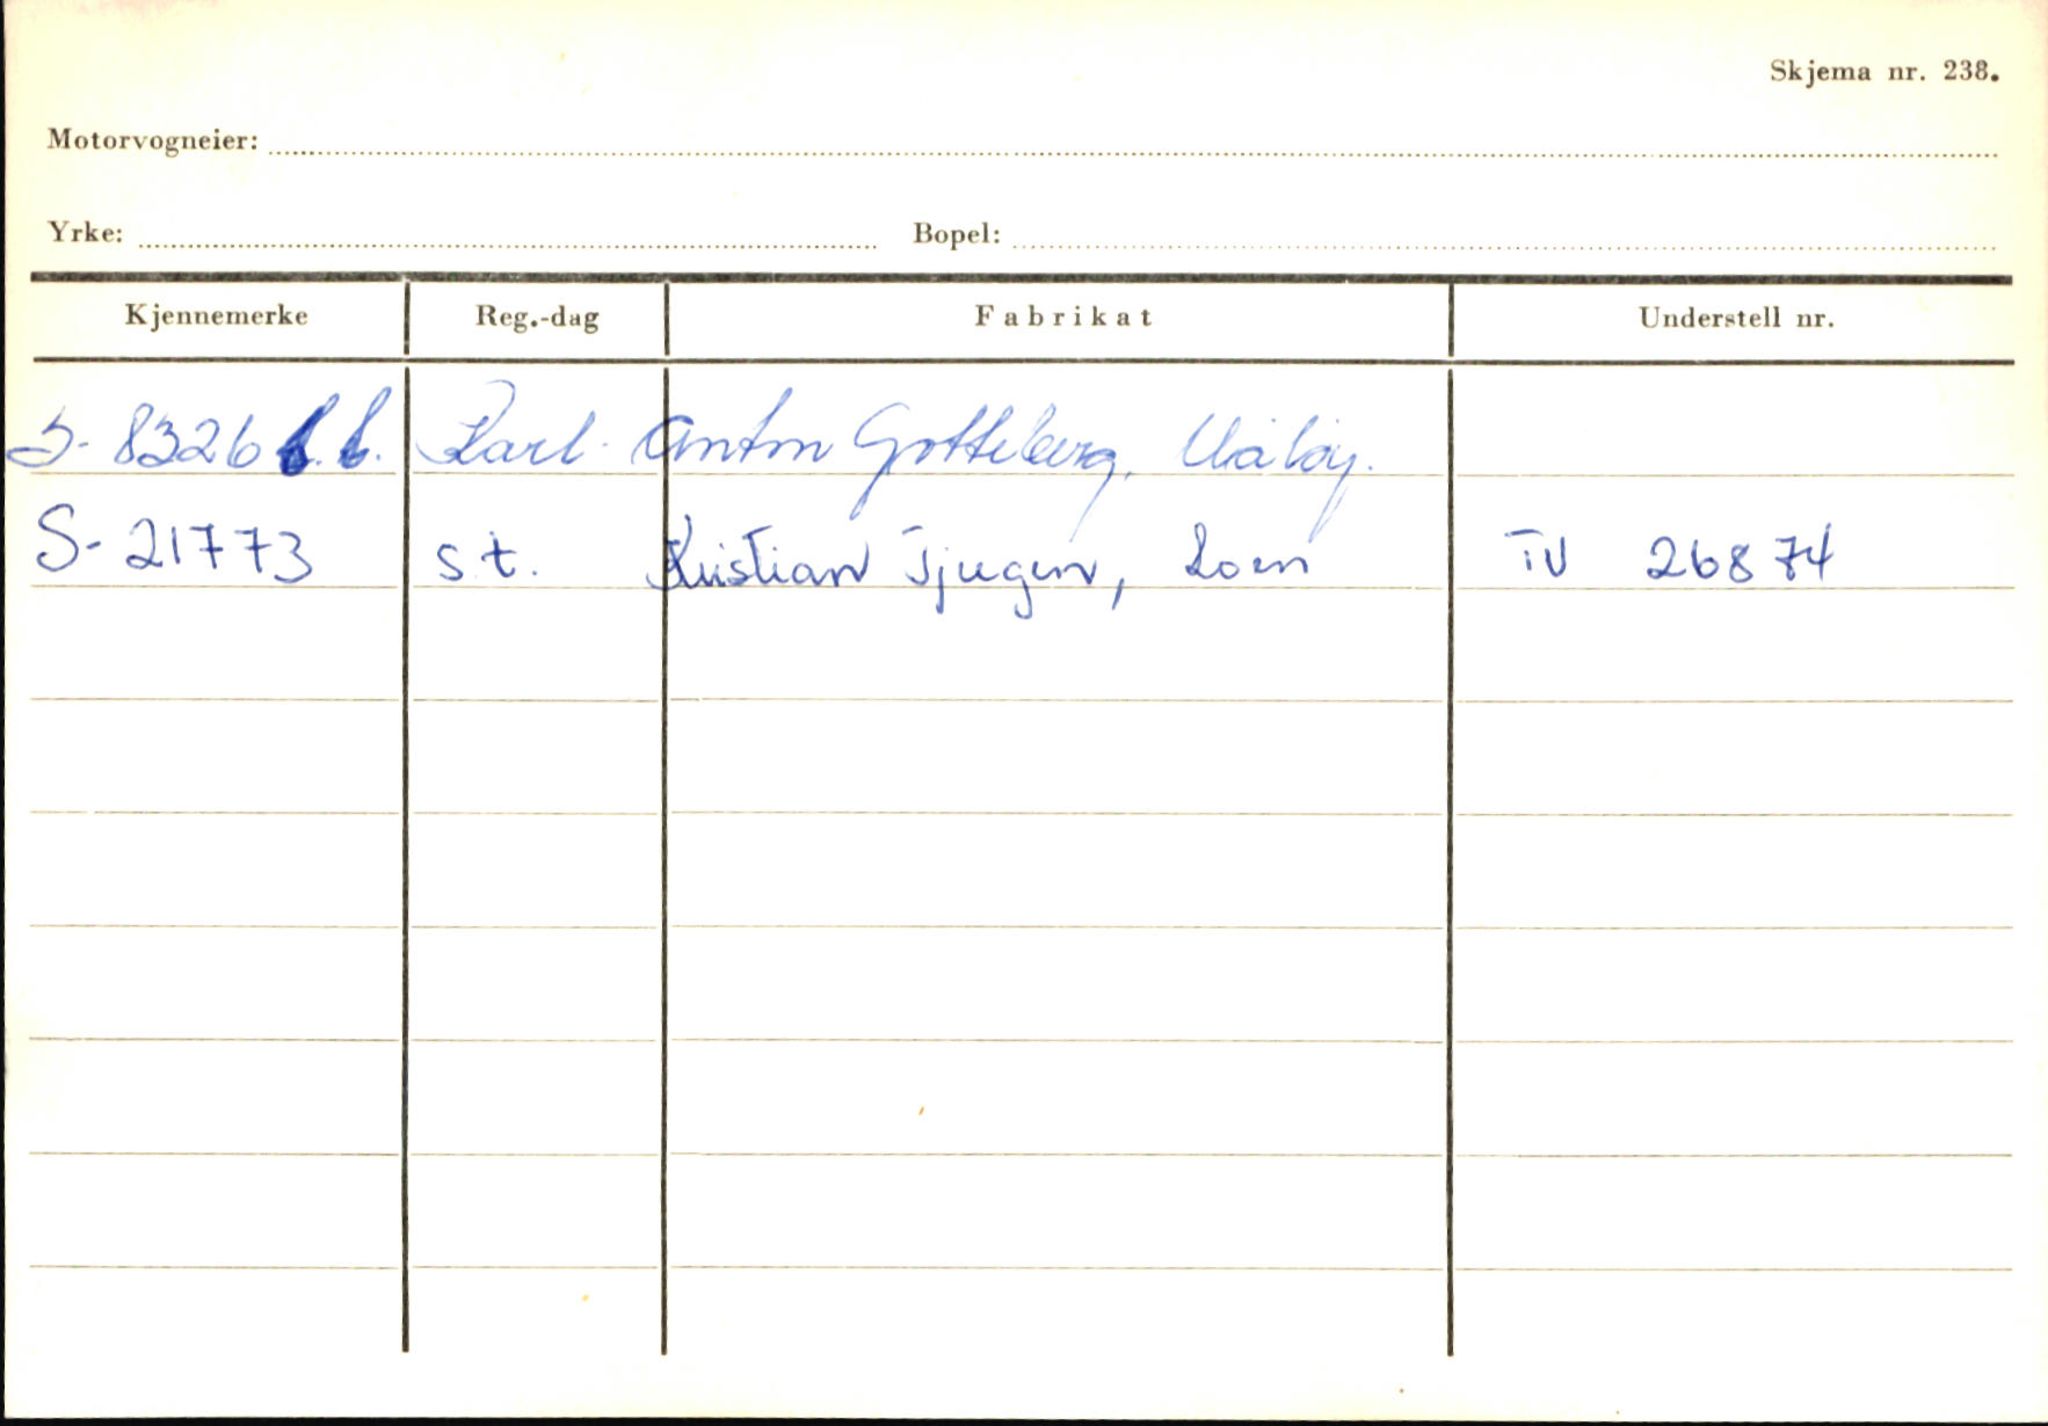 Skjema nr. 238.
Motorvogneier:
Yrke: Bopel:
Kjennemerke Reg.-dag Fabrikat Understell nr.
S- 8326 f.b. Karl-Anton Gotteberg, Måløy.
S- 21773 s.t. Kristian Tjugen, Loen TV 26874